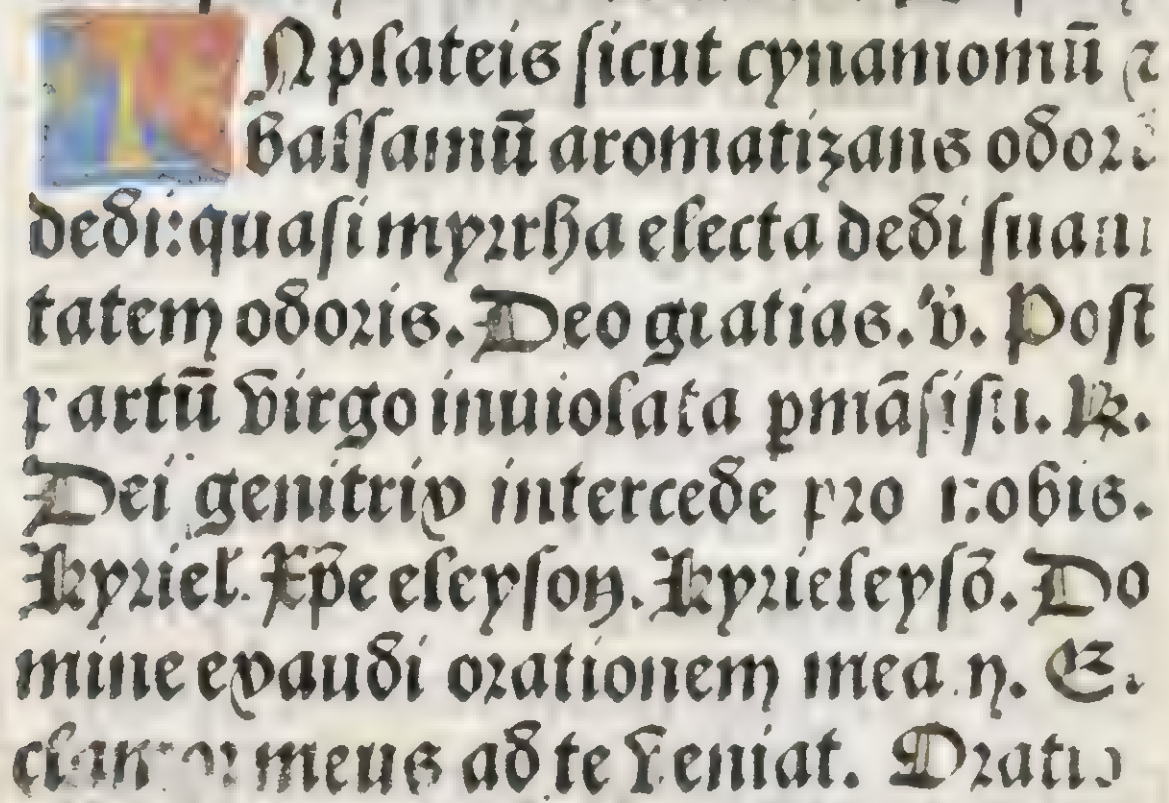 IN plateis sicut cynamomū ⁊
balsamū aromatizans odorē
dedi: quasi myrrha electa dedi suaui
tatem odoris. Deo gratias. ℣. Post
partū virgo inuiolata ꝑmāsisti. ℟.
Dei genitrix intercede pro nobis.
kyriel. xp̄e eleyson. kyrieleysō. Do
mine exaudi orationem meam. E.
clamor meus ad te veniat. Oratio